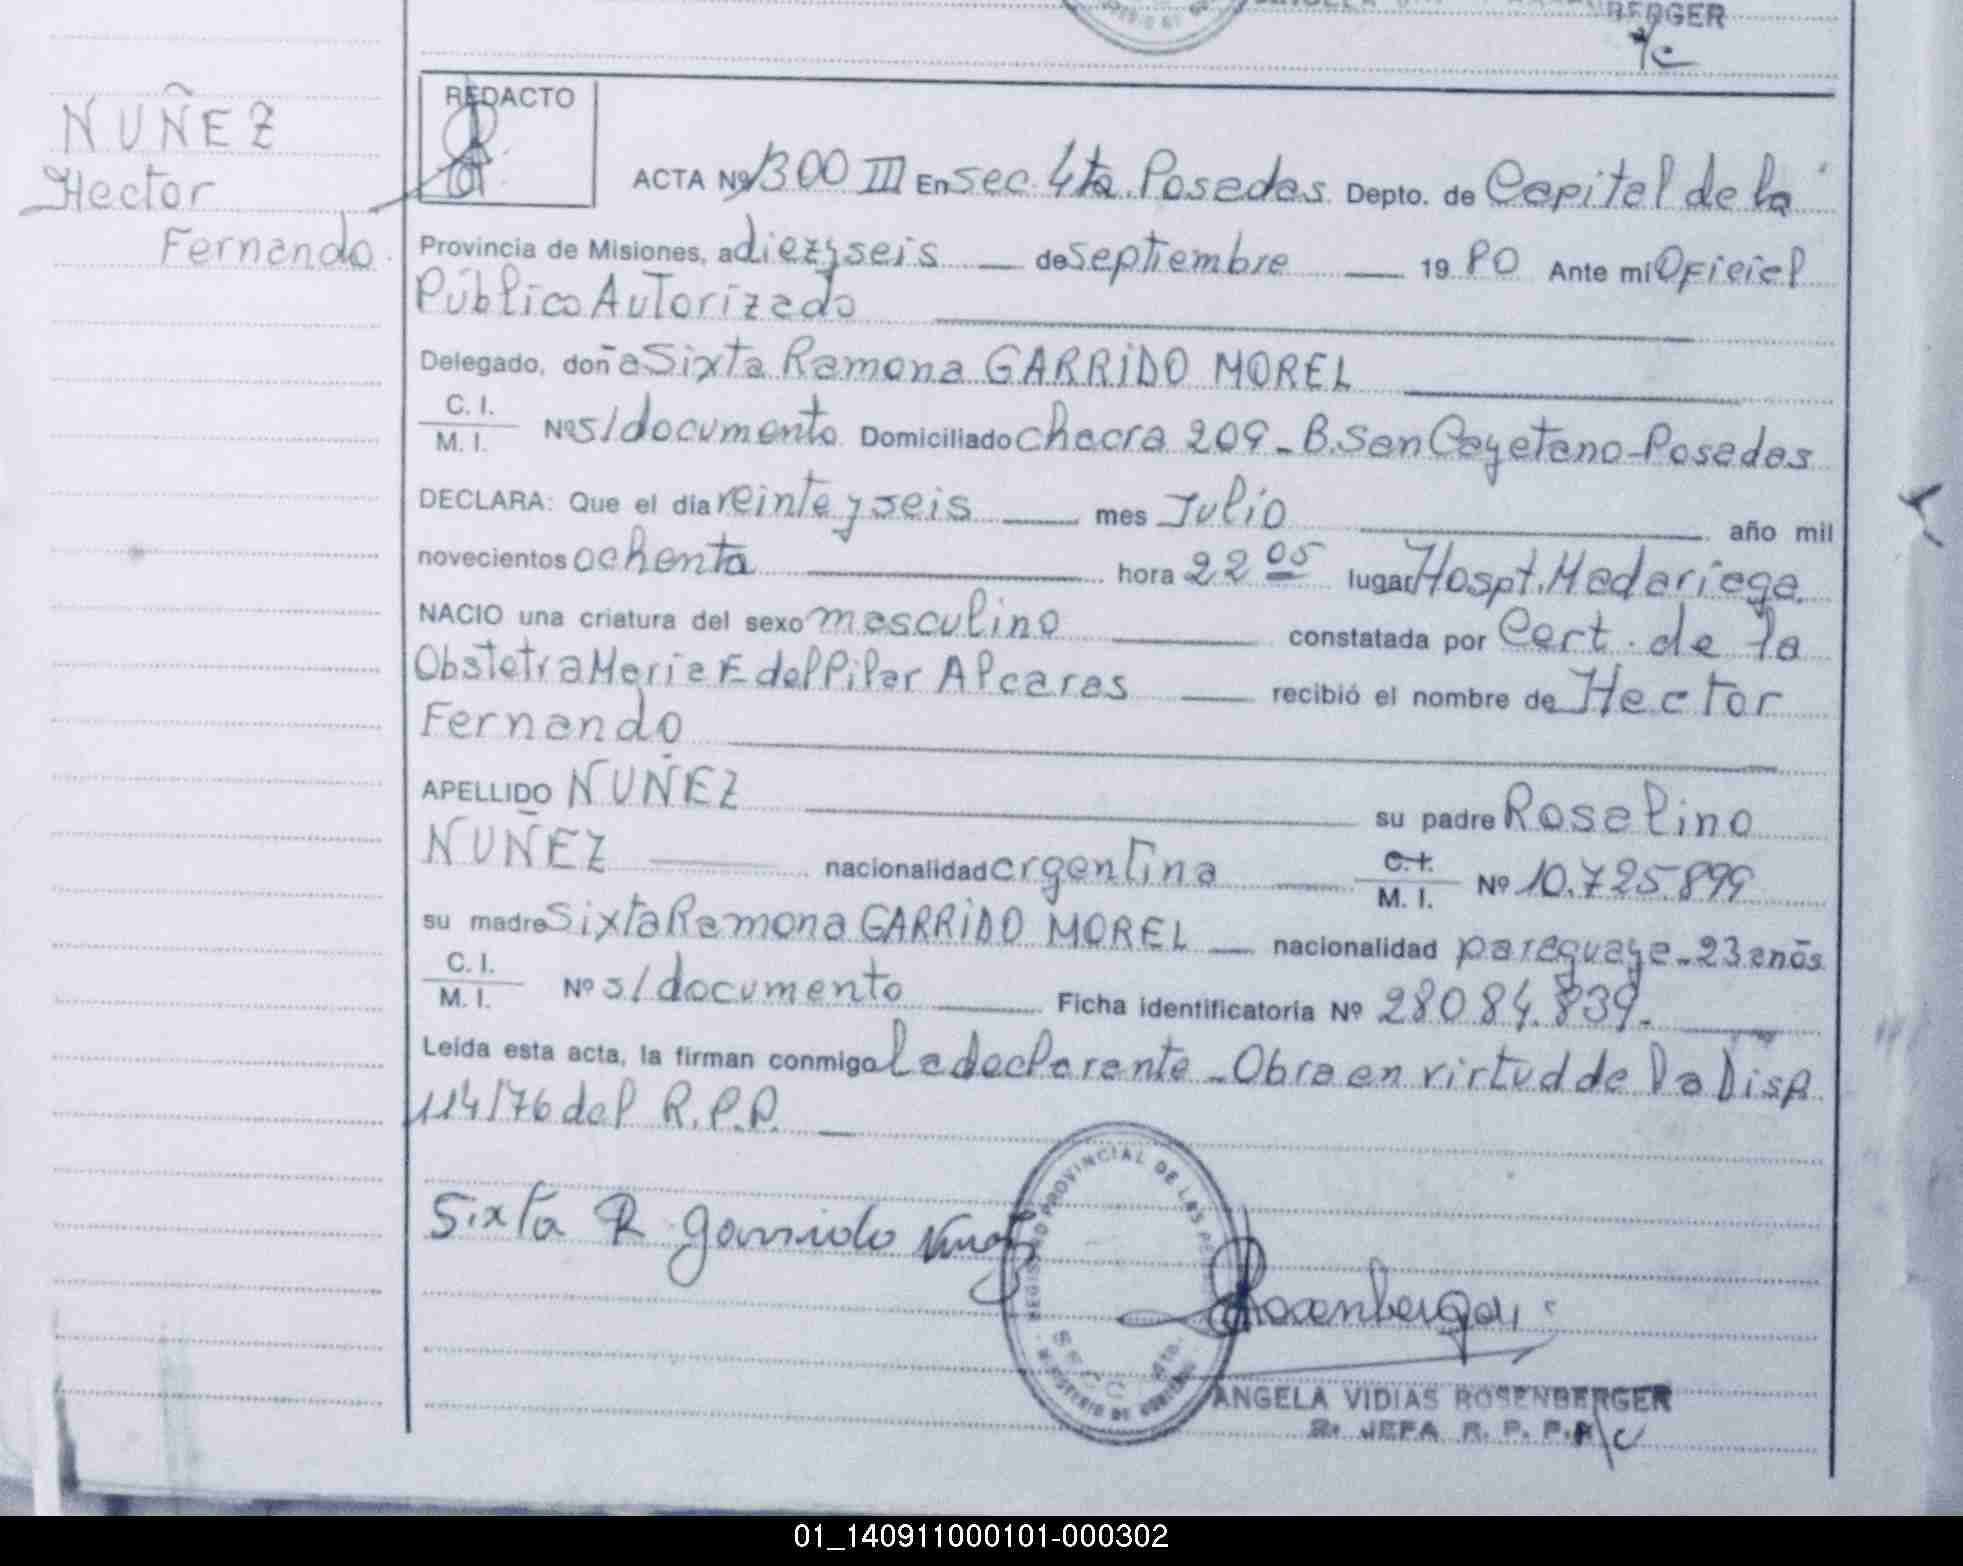 BERGER
NUÑEZ
Hector
Fernando.
REDACTO
ACTA Nº 1300 III En sec. 4ta. Posadas. Depto. de Capital de la
Provincia de Misiones, a diez y seis de septiembre 19 80 Ante mi Oficial
Público Autorizado
Delegado, doña Sixta Ramona GARRIDO MOREL
C. I.
M. I. Nº s/documento. Domiciliado chacra 209 - B. San Cayetano - Posadas
DECLARA: Que el día veinte y seis mes Julio año mil
novecientos ochenta hora 22 05 lugar Hospt. Madariaga.
NACIO una criatura del sexo masculino constatada por Cert. de la
Obstetra Maria E. del Pilar Alcaras recibió el nombre de Hector
Fernando
APELLIDO NUÑEZ su padre Roselino
NUÑEZ nacionalidad argentina C.I. M. I. Nº 10.725.899
su madre Sixta Ramona GARRIDO MOREL nacionalidad paraguaya - 23 años
C. I.
M. I. Nº s/documento Ficha identificatoria Nº 28084.839.
Leída esta acta, la firman conmigo la declarante - Obra en virtud de la Disp.
114/76 del R.P.P.
REGISTRO PROVINCIAL DE LAS PERSONAS
SECC. 4ta.
MINISTERIO DE GOBIERNO
Sixta R garrido Nuñez
Rosenberger
ANGELA VIDIAS ROSENBERGER
JEFA R. P. P.
01_140911000101-000302